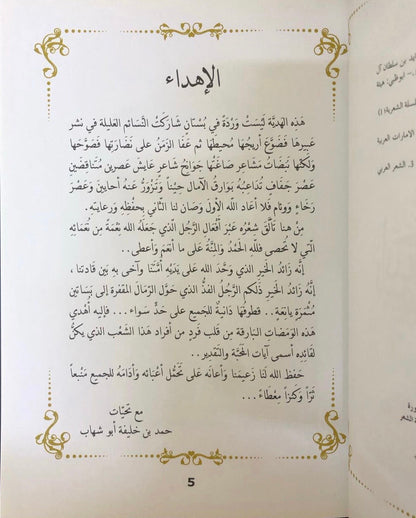 الإهداء
هَذه الهَديَّة لَيسَتْ وَردَةً في بُستَانٍ شَارَكَتْ النَّسائم العَليلة في نشر
عَبيرها فَضَوَّع أريْجُها مُحيطَها ثُم عَفا الزمَنُ على نَضَارَتها فَصَوَّحَها
وَلكنَّها نَبَضَاتُ مَشَاعر صَاغَتْها جَوانِحُ شَاعرٍ عَايشَ عَصرين مُتَنَاقِضَين
عَصرَ جَفَافٍ تُدَاعبُهُ بَوَارقُ الآمال حِيْناً وتَزْوَرُّ عَنهُ أحايين وعَصْرَ
رَخَاءٍ ووئام فَلا أعَادَ اللهُ الأولَ وَصَانَ لنا الثَّاني بحفْظه ورعايته.
مِنْ هنا تألَّقَ شعْرُه عَبْرَ أفْعَال الرَّجُلِ الّذي جَعلَه اللهُ نِعْمَةً من نَعْمَائِهِ
الّتي لا تُحصى فلله الحَمْدُ والمنَّةُ على ما أنعَمَ وأعطى..
إنَّه زَائدُ الخَيرِ الذي وَحَّدَ الله على يَدَيْهِ أُمَّتَنا وآخى بهِ بَين قَادتنا ،
إنَّهُ زَائدُ الخَيرِ ذَلكم الرَّجُلُ الفَذُّ الذي حَوَّلَ الرّمالَ المقفرة إلى بَسَاتين
مُثمرَة يانعَةٍ.. قطوفُها دَانيَةٌ للجَميع على حَدٍّ سواء... فإليه أُهْدي
هَذه الوَمَضاتِ البَارقةِ من قلبِ فَردٍ من أفراد هَذا الشَّعْب الذي يكنُّ
لقَائده أسمى آيات المَحَبَّة والتَّقدير..
حَفظ الله لَنا زَعيمَنا وأعَانَه على تَحَمُّل أعْبَائه وأدَامَهُ للجَميع مَنْبعاً
ثَرّاً وَكَنْزاً مِعْطَاءً...
مع تحيَّات
حمد بن خليفة أبو شهاب
5
ايد بن سلطان آل
ـ ابوظبي: هيئة
سلسلة الشعرية؛ 1)
الامارات العربية
3. الشعر العربي